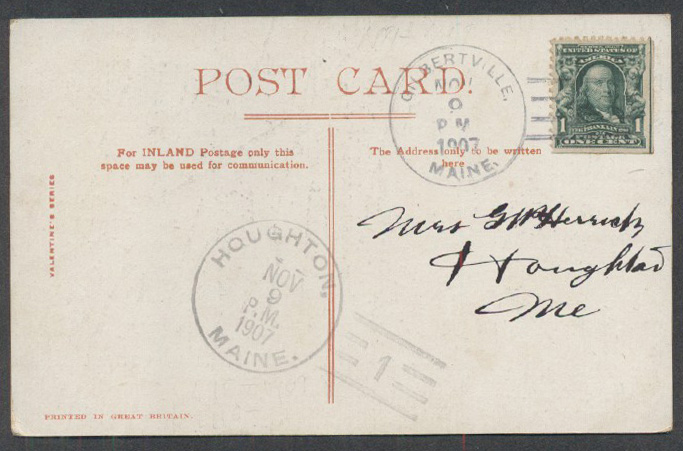 POST CARD.
For INLAND Postage only this
space may be used for communication.
The Address only to be written
here
VALENTINE'S SERIES
GILBERTVILLE,
NOV
9
P M
1907
MAINE.
UNITED STATES OF
AMERICA
1 FRANKLIN 1
POSTAGE
ONE CENT
Mrs G W Herrick
Houghton
Me
HOUGHTON,
NOV
9
P.M.
1907
MAINE.
1
PRINTED IN GREAT BRITAIN.